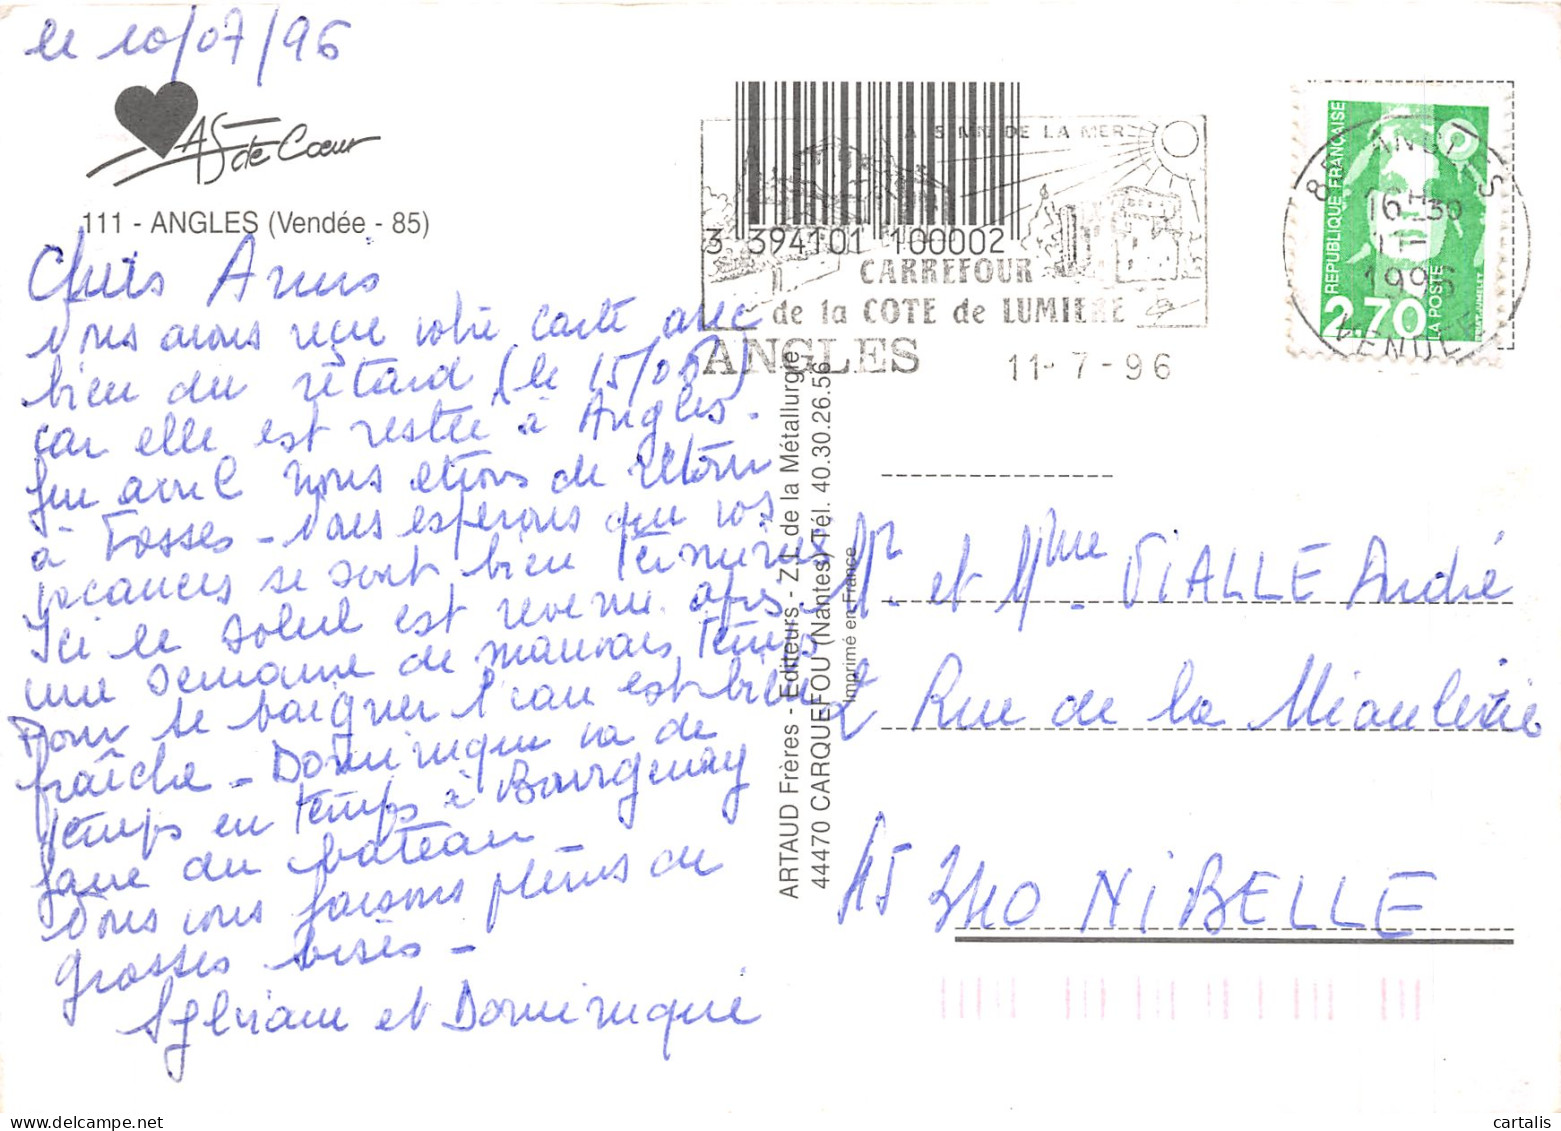 le 10/07/96
AS de Cœur
111 - ANGLES (Vendée - 85)
Chers Amis
Nous avons reçu votre carte avec
bien du retard (le 15/05)
car elle est restée à Angles.
fin avril nous etions de retour
à Fosses - Nous esperons que vos
vacances se sont bien terminées
Ici le soleil est revenu après
une semaine de mauvais temps
Pour se baigner l'eau est bien
fraîche - Dominique va de
temps en temps à Bourgenay
faire du bateau
Nous vous faisons pleins de
grosses bises -
Sylviane et Dominique
3 394101 100002
DE LA MER
CARREFOUR
de la COTE de LUMIERE
ANGLES
11-7-96
85 ANGLES
16H30
11-7
1996
VENDEE
REPUBLIQUE FRANÇAISE
2,70
LA POSTE
ARTAUD Frères - Editeurs - Z.I. de la Métallurgie
44470 CARQUEFOU (Nantes) Tél. 40.30.26.56
Imprimé en France
Mr et Mme VIALLE André
2 Rue de la
45 340 NIBELLE
cartalis